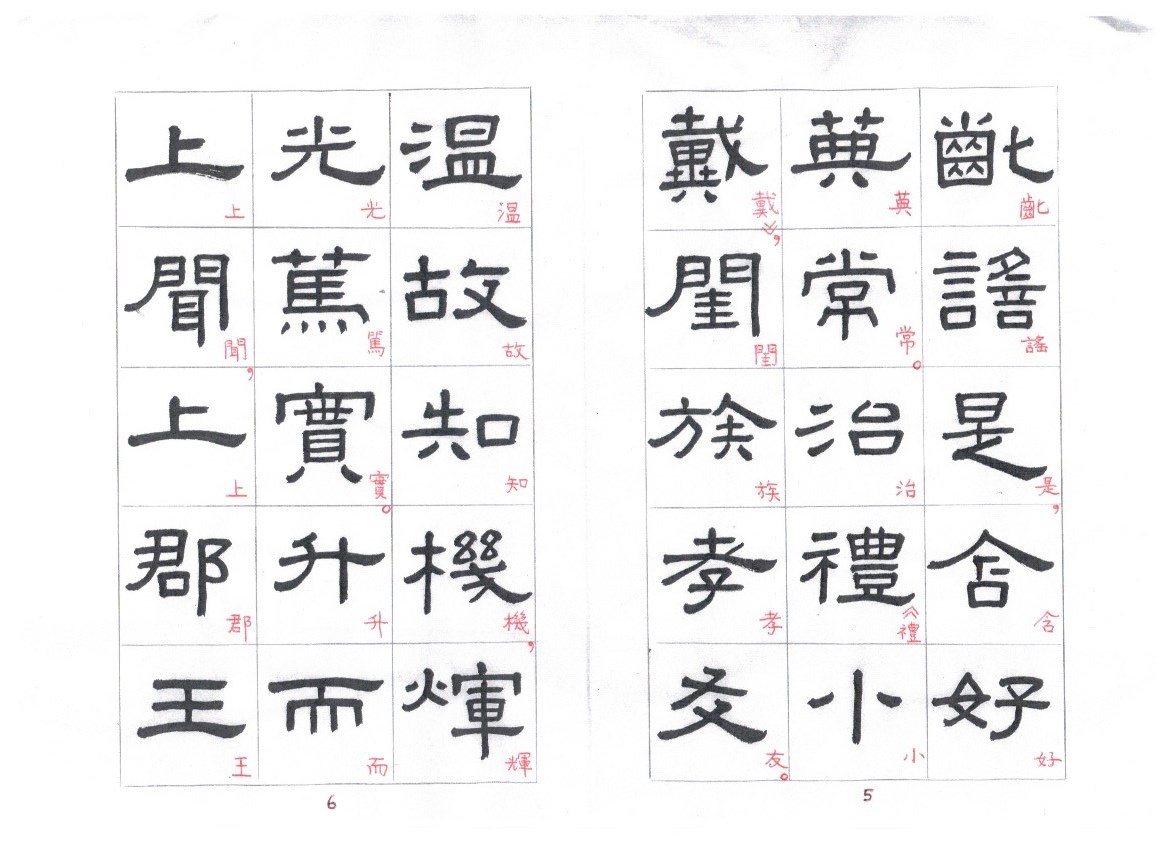 齔謠是含好
齔謠是，含好
英常治禮小
英常。治《禮小
戴閨族孝友
戴》，閨族孝友。
5
温故知機煇
温故知機，輝
光篤實升而
光篤實。升而
上聞上郡王
上聞，上郡王
6